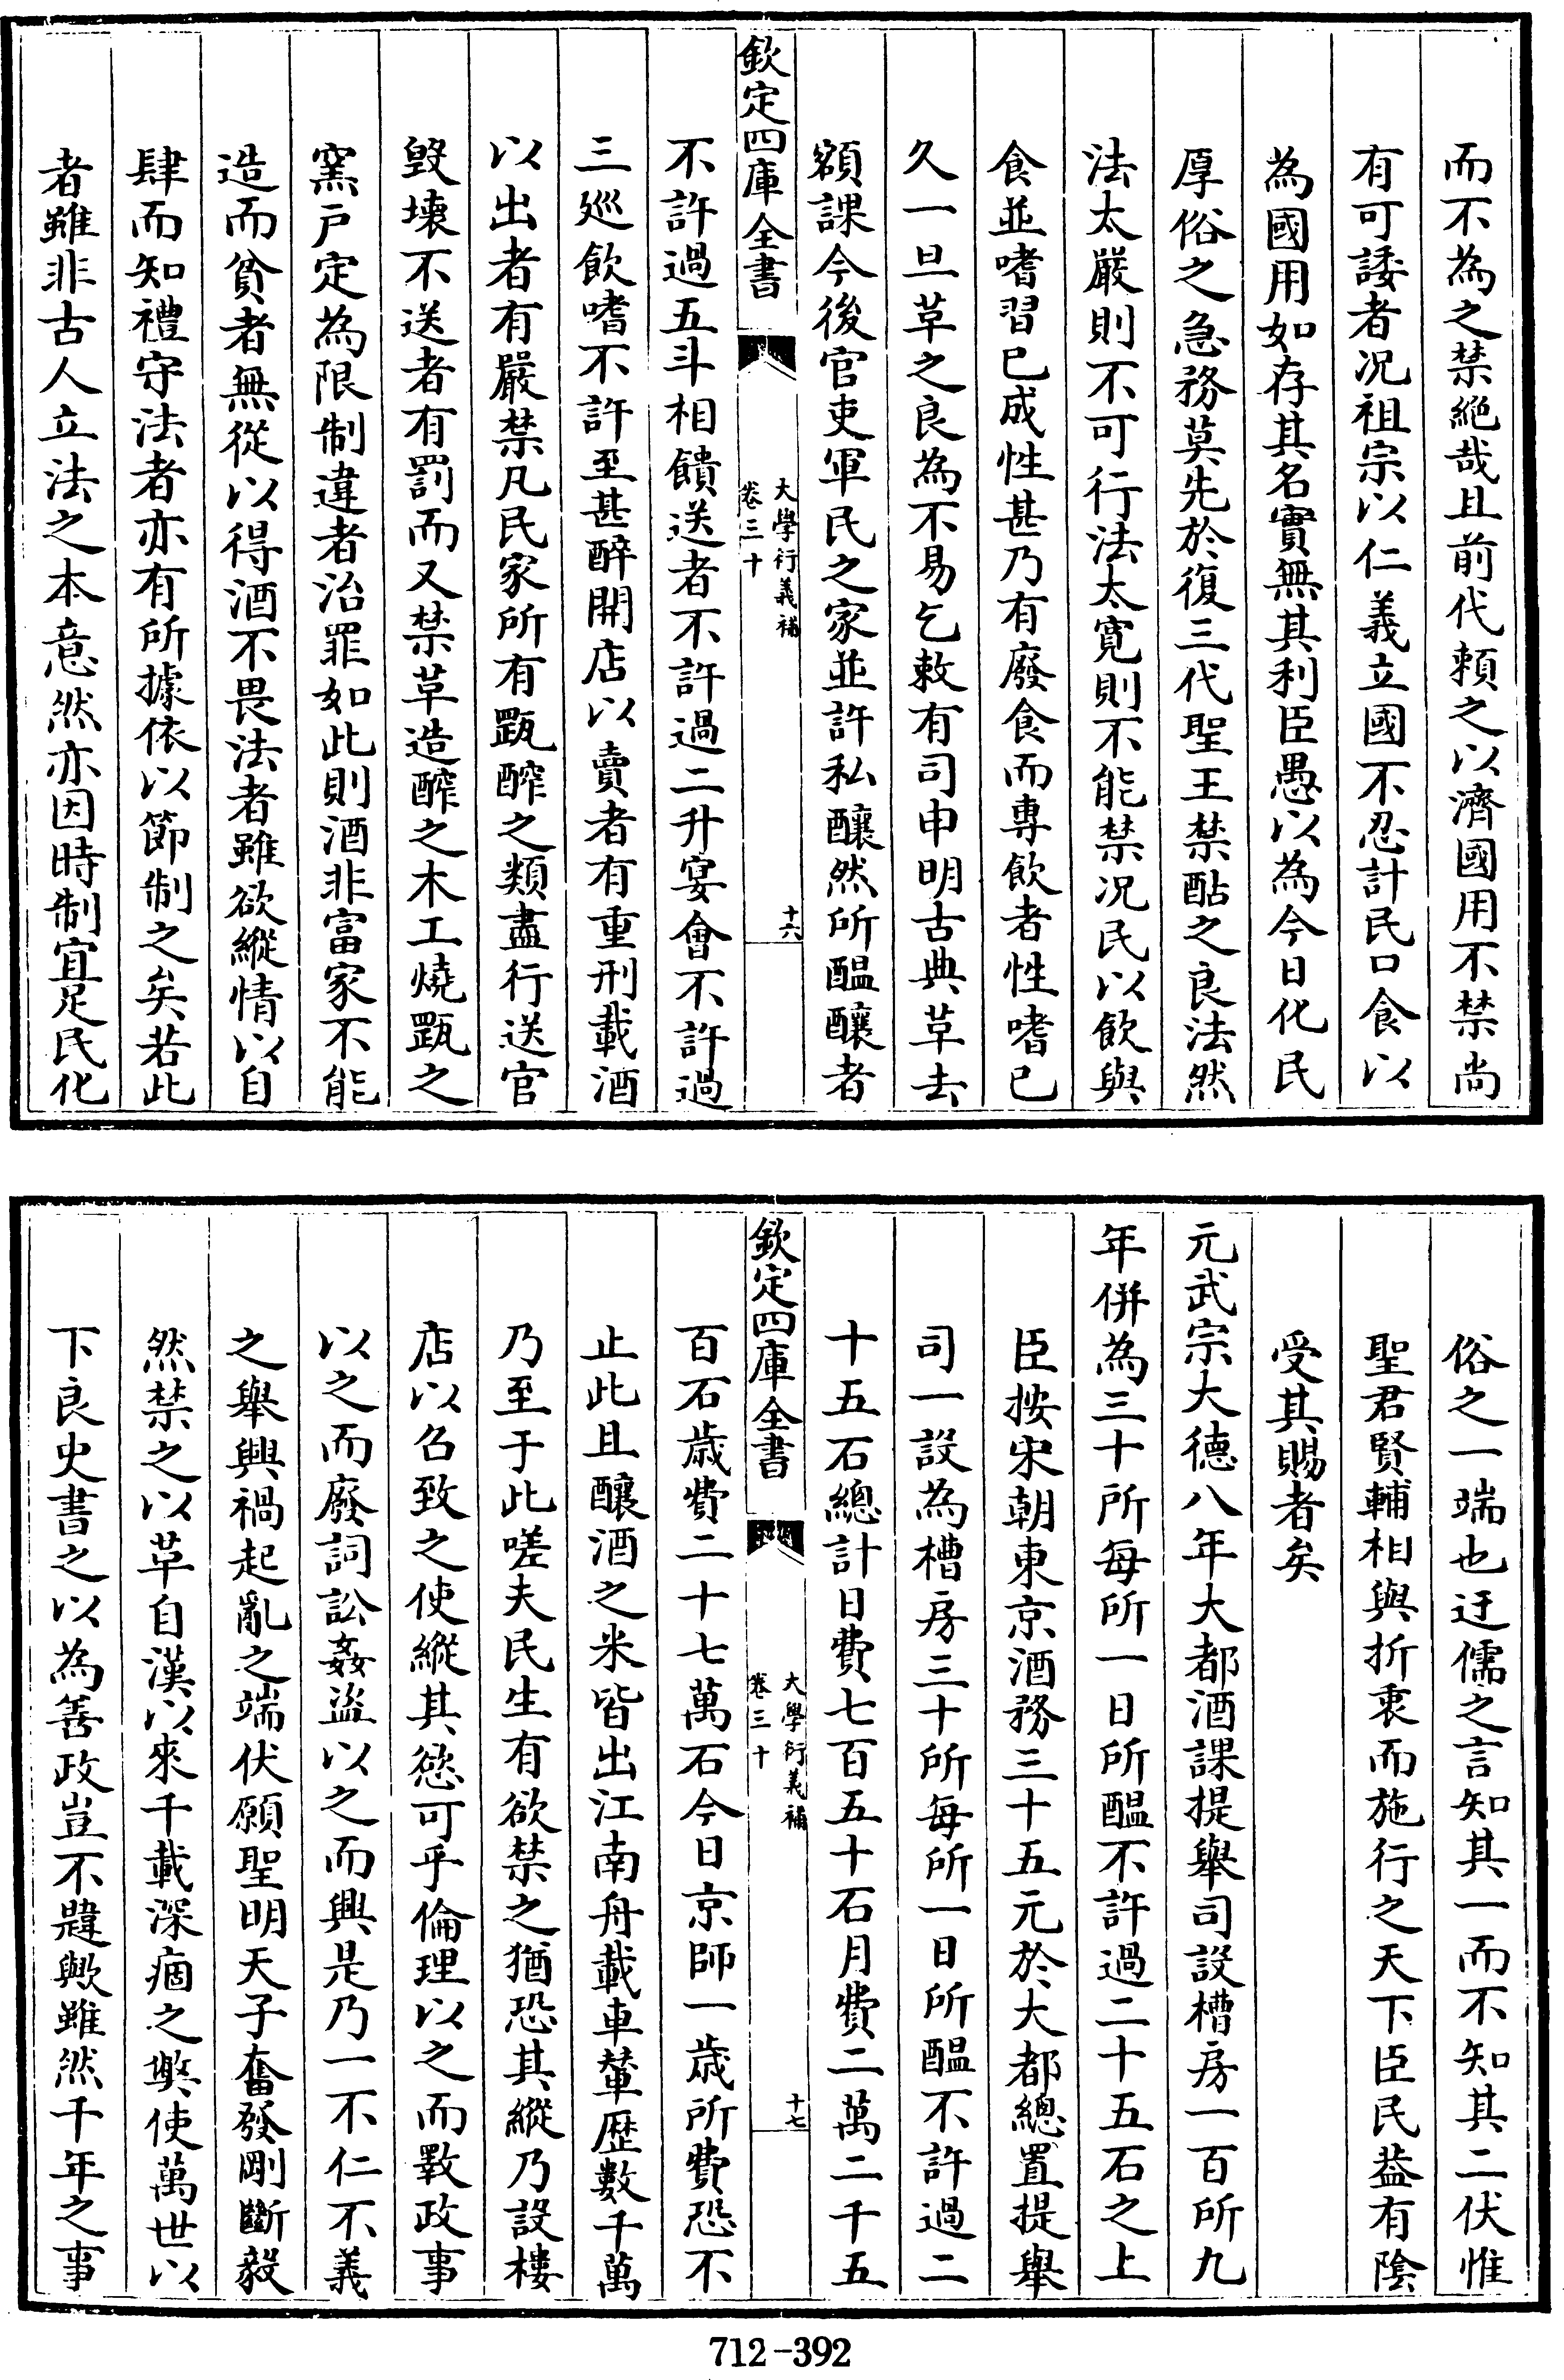 而不為之禁絶哉且前代頼之以濟國用不禁尚
有可諉者况祖宗以仁義立國不忍計民口食以
為國用如存其名實無其利臣愚以為今日化民
厚俗之急務莫先於復三代聖王禁酤之良法然
法太嚴則不可行法太寛則不能禁况民以飲與
食並嗜習已成性甚乃有廢食而專飲者性嗜已
久一旦革之良為不易乞敕有司申明古典革去
額課今後官吏軍民之家並許私釀然所醖釀者
欽定四庫全書
大學衍義補
卷三十
十六
不許過五斗相饋送者不許過二升宴會不許過
三廵飲嗜不許至甚醉開店以賣者有重刑載酒
以出者有嚴禁凡民家所有甑醡之類盡行送官
毁壊不送者有罰而又禁革造醡之木工燒甑之
窯戸定為限制違者治罪如此則酒非富家不能
造而貧者無從以得酒不畏法者雖欲縱情以自
肆而知禮守法者亦有所據依以節制之矣若此
者雖非古人立法之本意然亦因時制宜足民化
俗之一端也迂儒之言知其一而不知其二伏惟
聖君賢輔相與折衷而施行之天下臣民益有陰
受其賜者矣
元武宗大德八年大都酒課提舉司設槽房一百所九
年併為三十所每所一日所醖不許過二十五石之上
臣按宋朝東京酒務三十五元於大都總置提舉
司一設為槽房三十所每所一日所醖不許過二
十五石總計日費七百五十石月費二萬二千五
欽定四庫全書
大學衍義補
卷三十
十七
百石歳費二十七萬石今日京師一歳所費恐不
止此且釀酒之米皆出江南舟載車輦歴數千萬
乃至于此嗟夫民生有欲禁之猶恐其縱乃設樓
店以召致之使縱其慾可乎倫理以之而斁政事
以之而廢詞訟姦盜以之而興是乃一不仁不義
之舉興禍起亂之端伏願聖明天子奮發剛斷毅
然禁之以革自漢以來千載深痼之弊使萬世以
下良史書之以為善政豈不韙歟雖然千年之事
712-392